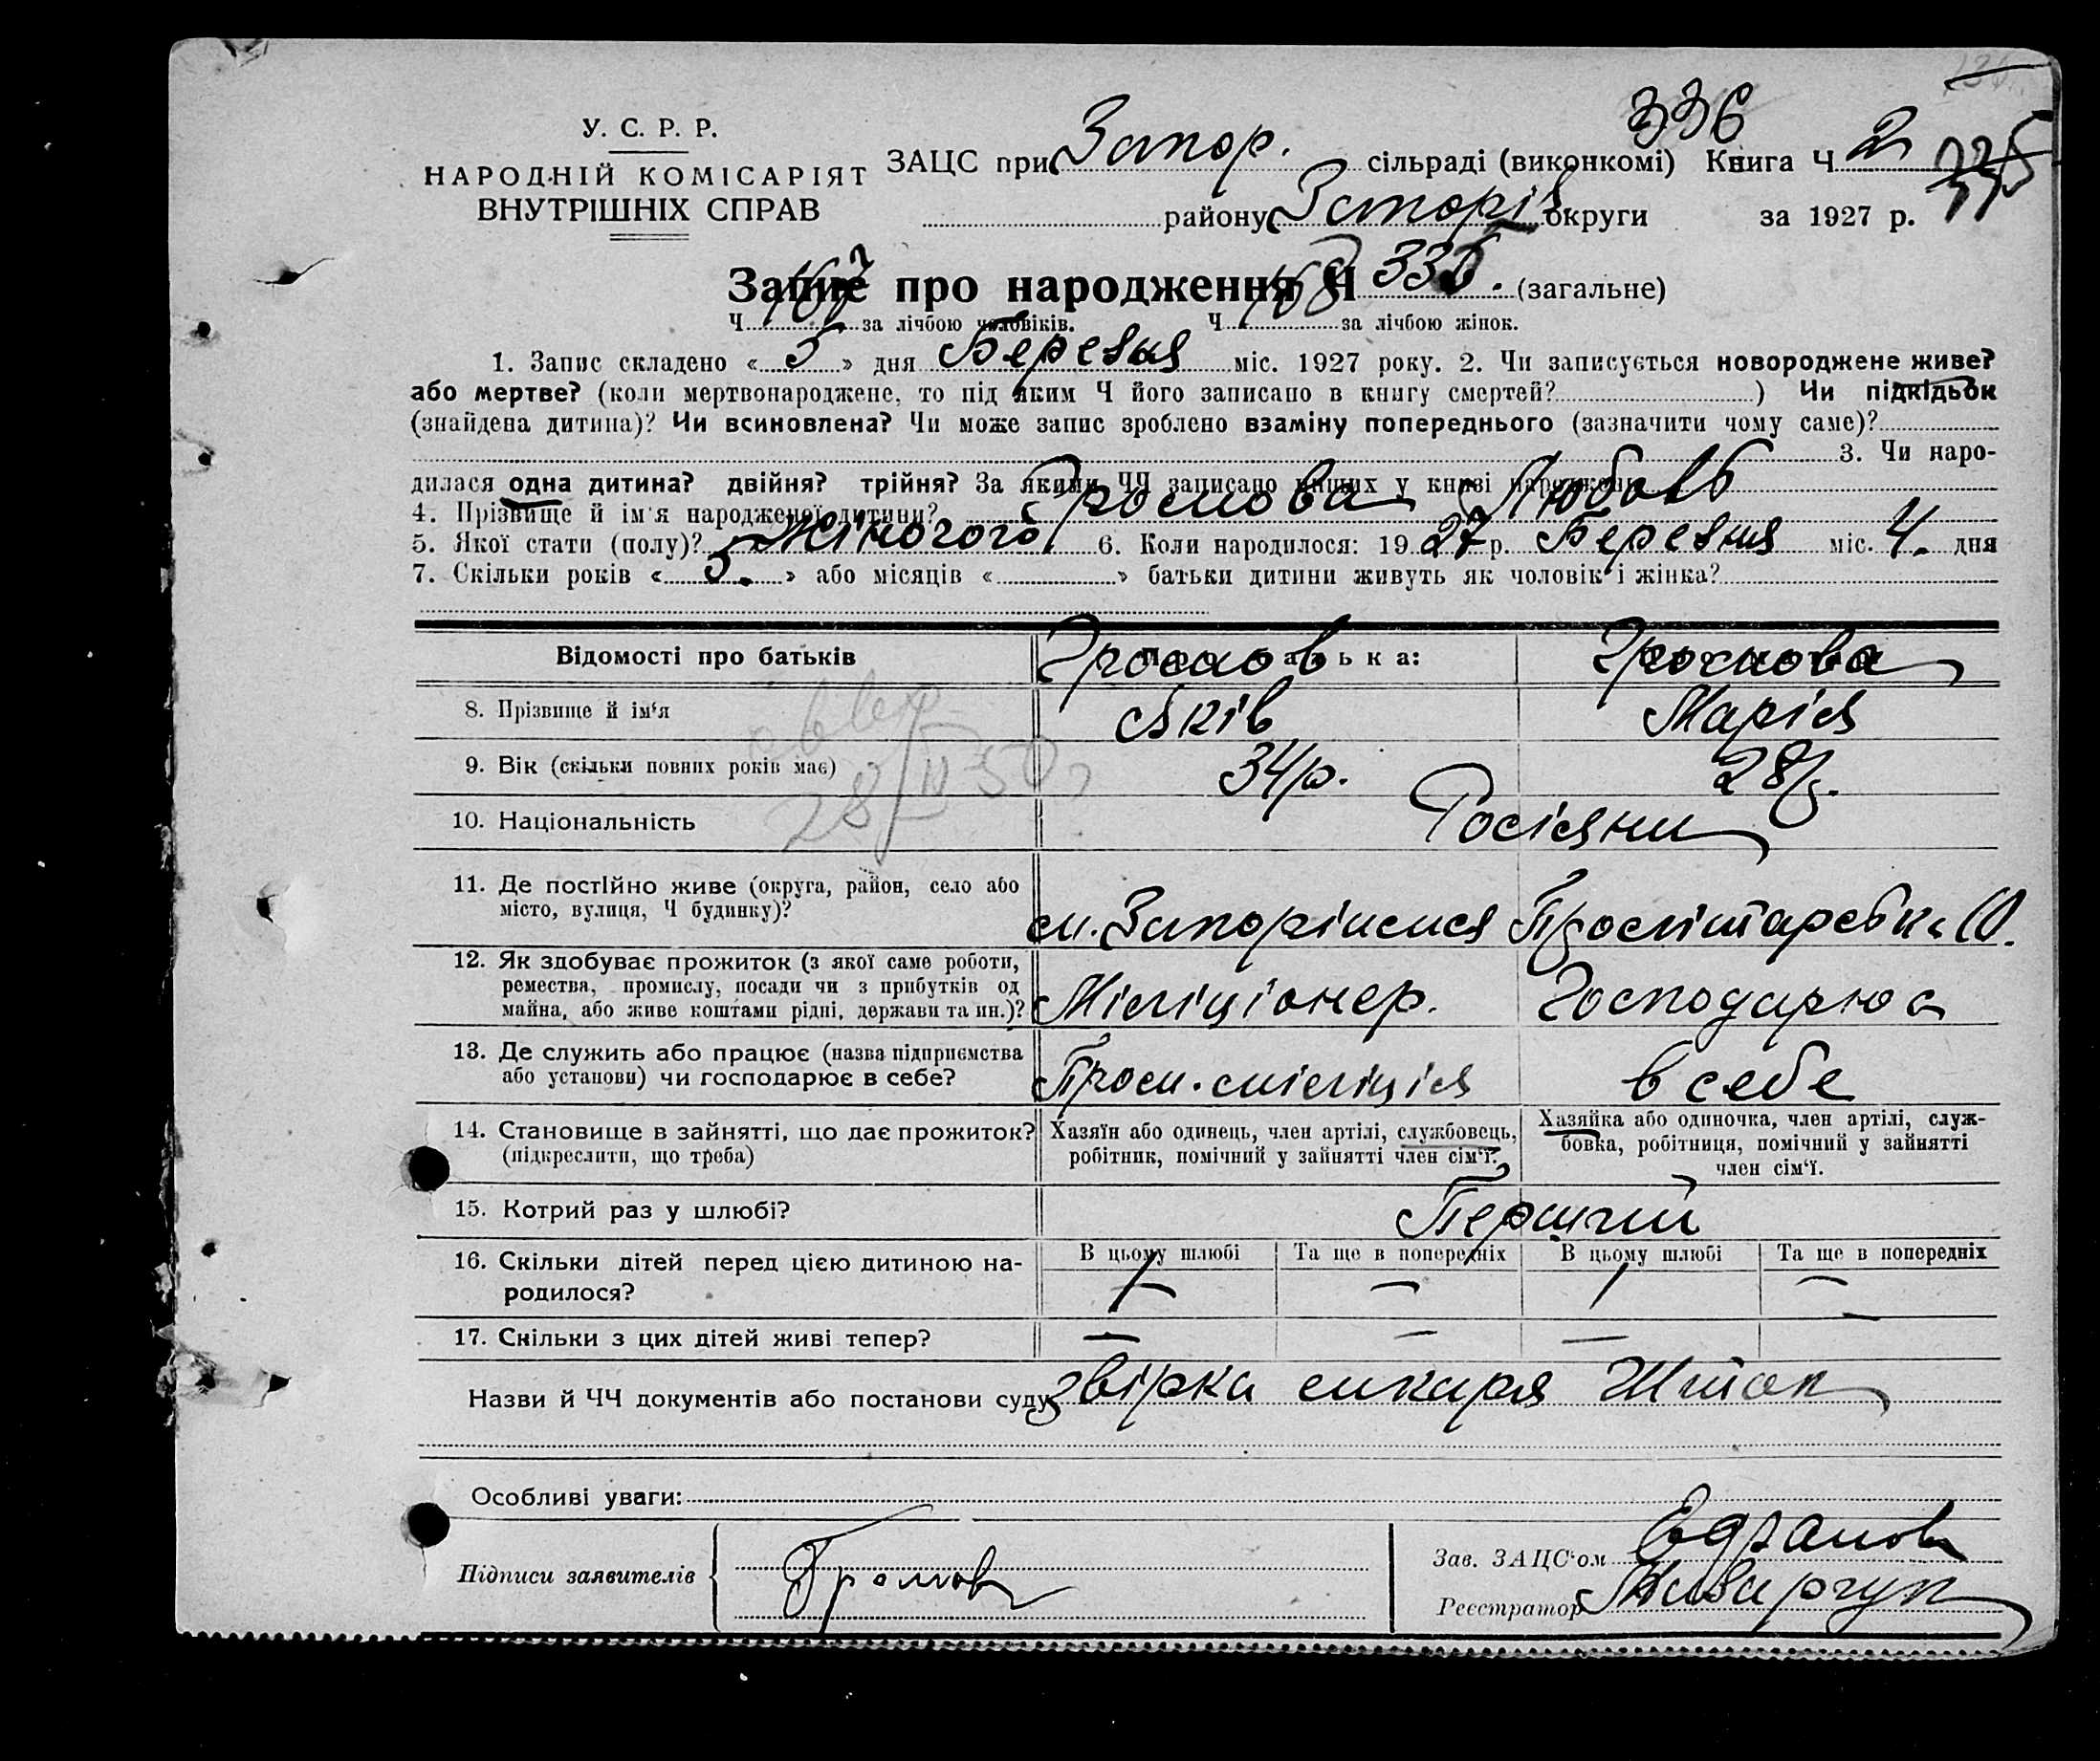 336
У. С. Р. Р.
НАРОДНІЙ КОМІСАРІЯТ
ВНУТРІШНІХ СПРАВ
ЗАЦС при Запор. сільраді (виконкомі) Книга Ч 2
району Запоріз. округи за 1927 р. 335
Запис про народження Ч 335. (загальне)
Ч 167 за лічбою чоловіків. Ч 168 за лічбою жінок.
1. Запис складено « 5 » дня Березня міс. 1927 року. 2. Чи записується новороджене живе?
або мертве? (коли мертвонароджене, то під яким Ч його записано в книгу смертей? ) Чи підкідьок
(знайдена дитина)? Чи всиновлена? Чи може запис зроблено взаміну попереднього (зазначити чому саме)?
3. Чи наро-
дилася одна дитина? двійня? трійня? За якими ЧЧ записано інших у книзі народжень
4. Прізвище й ім'я народженої дитини? Громова Любовь
5. Якої стати (полу)? Жіночого 6. Коли народилося: 1927 р. Березня міс. 4. дня
7. Скільки років « 5. » або місяців « » батьки дитини живуть як чоловік і жінка?
Відомості про батьків Про батька: Громов Громова
8. Прізвище й ім'я Яків Марія
9. Вік (скільки повних років має) 34 р. 28 р.
28/IV 50
10. Національність Росіяни
11. Де постійно живе (округа, район, село або
місто, вулиця, Ч будинку)? м. Запоріжжя Пролітарська 10.
12. Як здобуває прожиток (з якої саме роботи,
ремества, промислу, посади чи з прибутків од
майна, або живе коштами рідні, держави та ин.)? Міліціонер. Господарює
13. Де служить або працює (назва підприємства
або установи) чи господарює в себе? Пром. міліція в себе
14. Становище в зайнятті, що дає прожиток?
(підкреслити, що треба)
Хазяїн або одинець, член артілі, службовець,
робітник, помічний у зайнятті член сім'ї.
Хазяйка або одиночка, член артілі, служ-
бовка, робітниця, помічний у зайнятті
член сім'ї.
15. Котрий раз у шлюбі? Перший
16. Скільки дітей перед цією дитиною на-
родилося?
В цьому шлюбі Та ще в попередніх В цьому шлюбі Та ще в попередніх
1 — 1 —
17. Скільки з цих дітей живі тепер? — — — —
Назви й ЧЧ документів або постанови суду звірка лікаря
Особливі уваги:
Підписи заявителів Громов
Зав. ЗАЦС'ом
Реєстратор